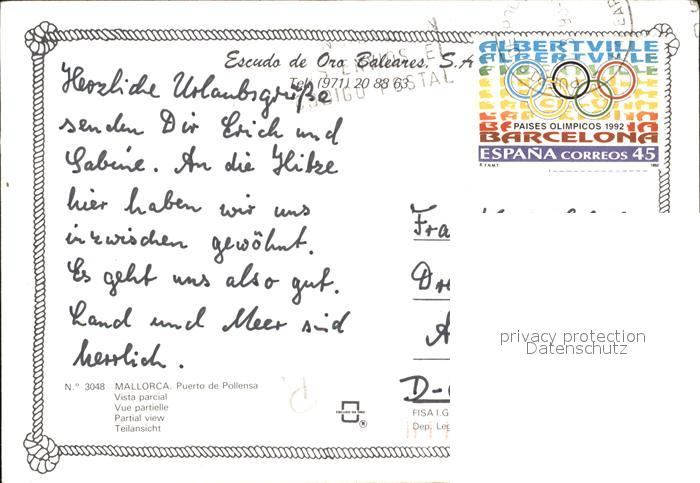 Escudo de Oro Baleares, S.A
Tel. (971) 20 88 63
Herzliche Urlaubsgrüße
senden Dir Erich und
Sabine. An die Hitze
hier haben wir uns
inzwischen gewöhnt.
Es geht uns also gut.
Land und Meer sind
herrlich.
ALBERTVILLE
ALBERTVILLE
PAISES OLIMPICOS 1992
BARCELONA
ESPAÑA CORREOS 45
1992
Fra
D-
privacy protection
Datenschutz
N.º 3048 MALLORCA. Puerto de Pollensa
Vista parcial
Vue partielle
Partial view
Teilansicht
ESCUDO DE ORO
FISA I.G
Dep. Leg